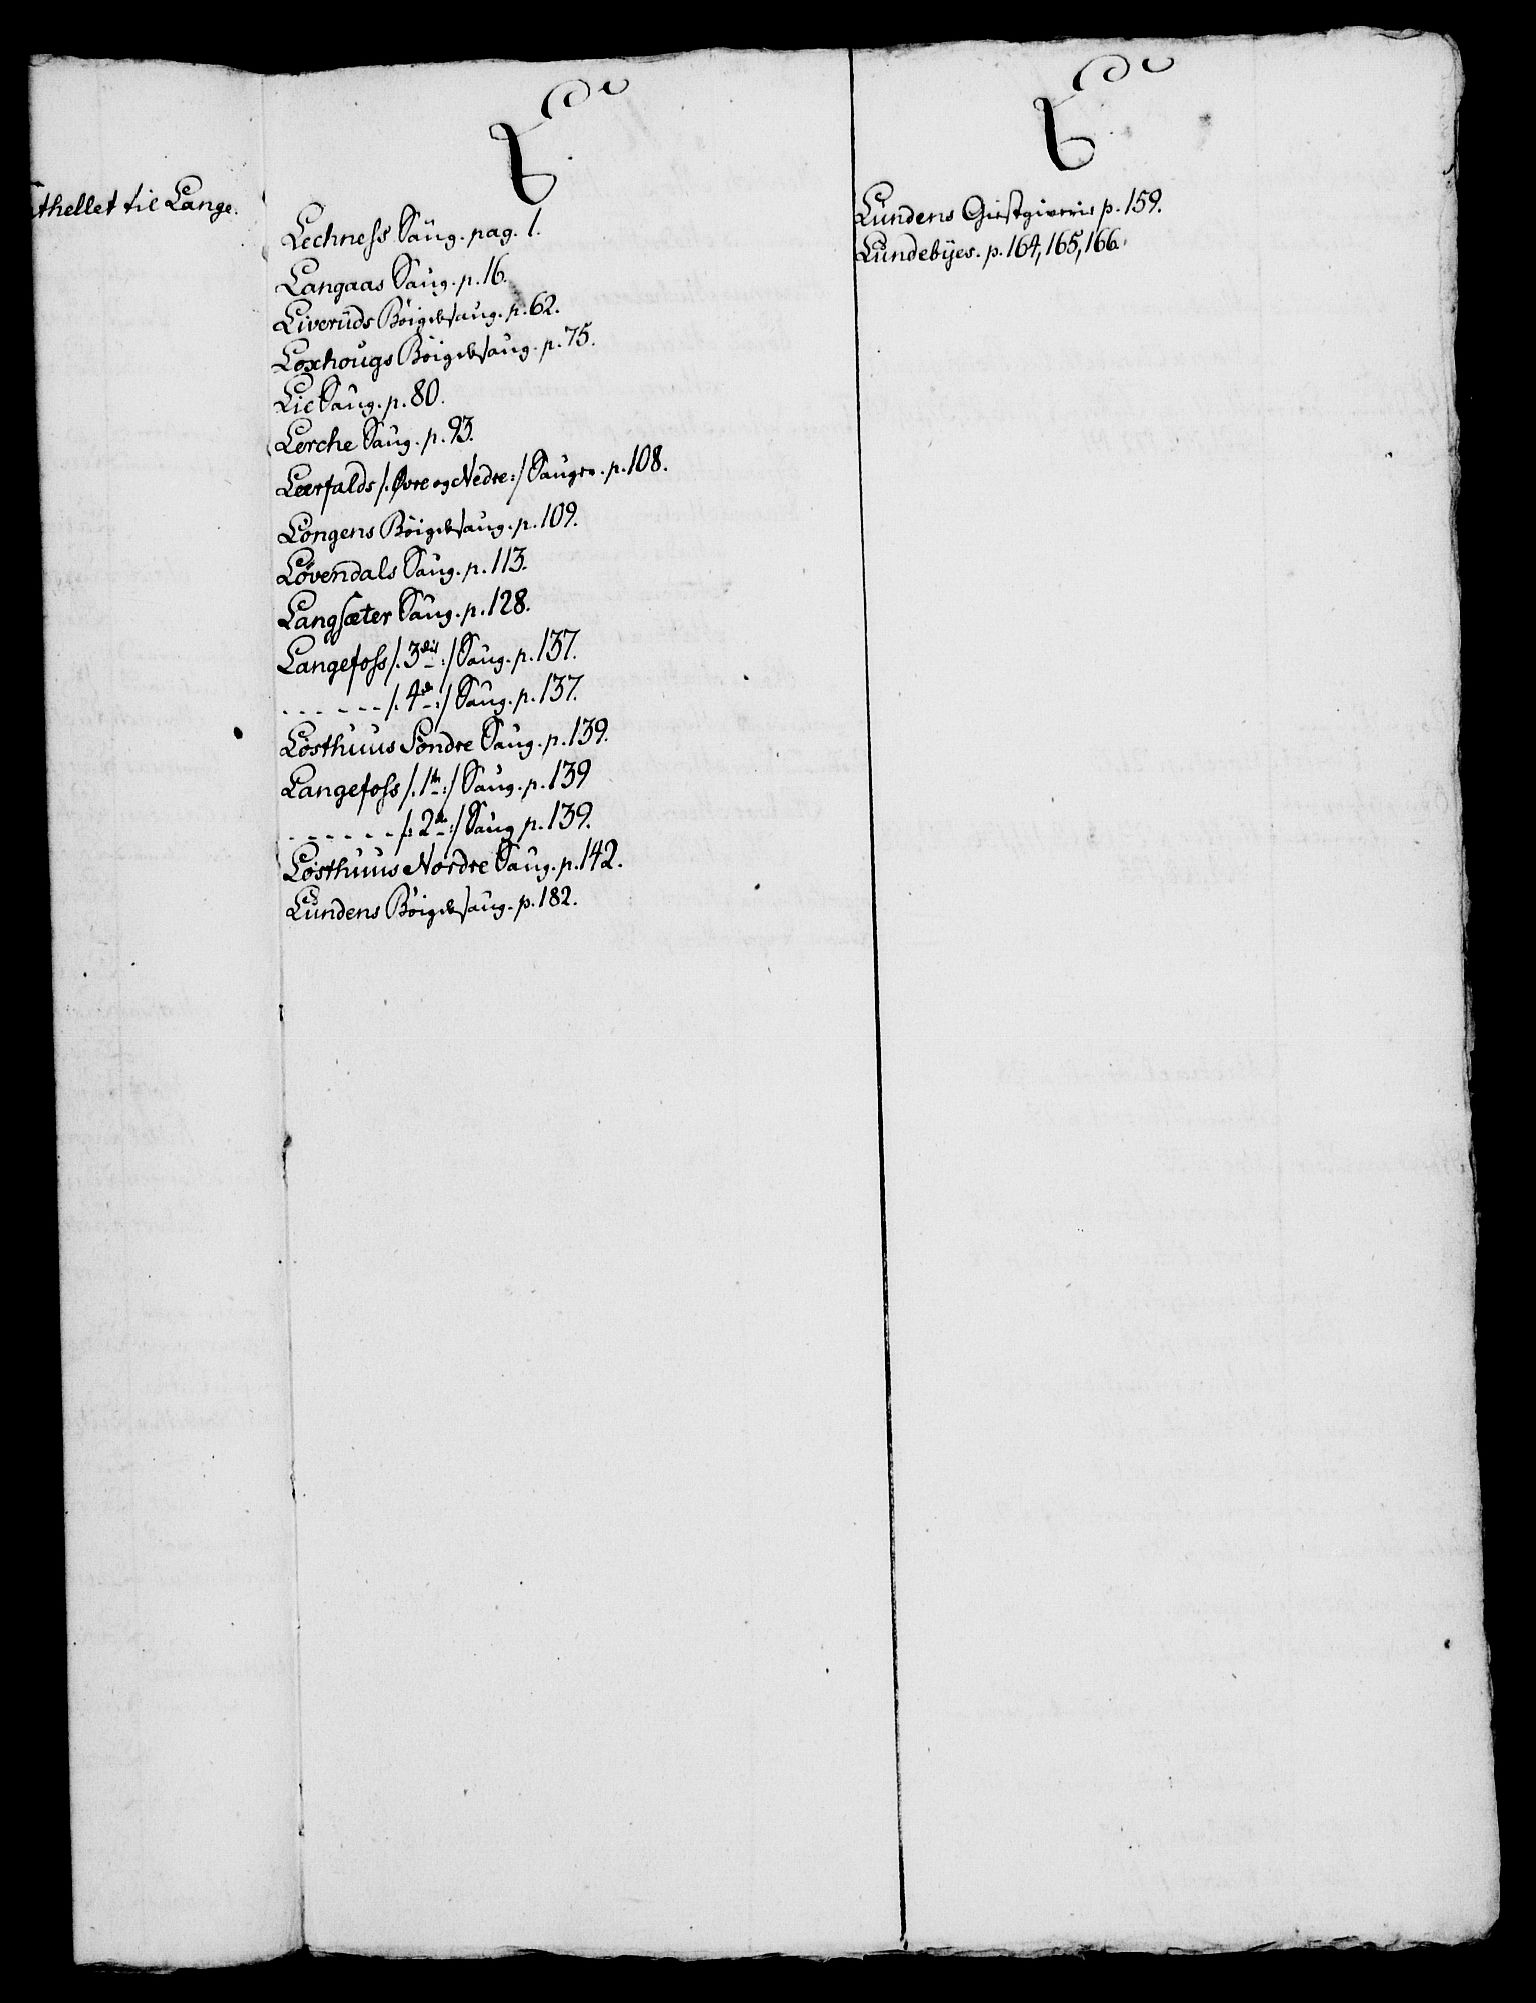 thellet til Lange.
L
Lechness Saug. pag. 1.
Langaas Saug. p. 16.
Liveruds Böigdesaug. p. 62.
Loxhougs Böigdesaug. p. 75.
Lie Saug. p. 80.
Lerche Saug. p. 93.
Leerfalds /: Øvre og Nedre :/ Sauger. p. 108.
Longens Böigdesaug. p. 109.
Løvendals Saug. p. 113.
Langsæter Saug. p. 128.
Langefoss /: 3die :/ Saug. p. 137.
------ /: 4de :/ Saug. p. 137.
Lösthuus Söndre Saug. p. 139.
Langefoss /: 1te :/ Saug. p. 139
------ /: 2de :/ Saug p. 139.
Lösthuus Nordre Saug. p. 142.
Lundens Böigdesaug. p. 182.
L
Lundens Giestgiverie p. 159.
Lundebÿes. p. 164, 165, 166.